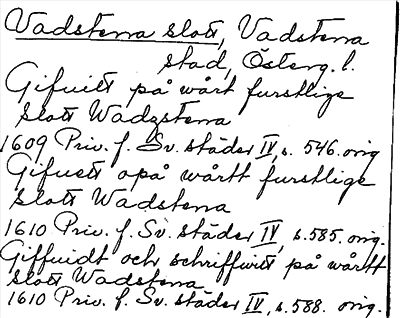 Vadstena slott, Vadstena
stad, Österg. l.
Gifuitt på wårt furstlige
slott Wadzstena
1609 Priv. f. Sv. städer IV, s. 546. orig
Gifuett opå wårtt furstlige
slott Wadstena
1610 Priv. f. Sv. städer IV, s. 585. orig.
Giffuidt och schriffwitt på wårtt
slott Wadstena
1610 Priv. f. Sv. städer IV, s. 588. orig.